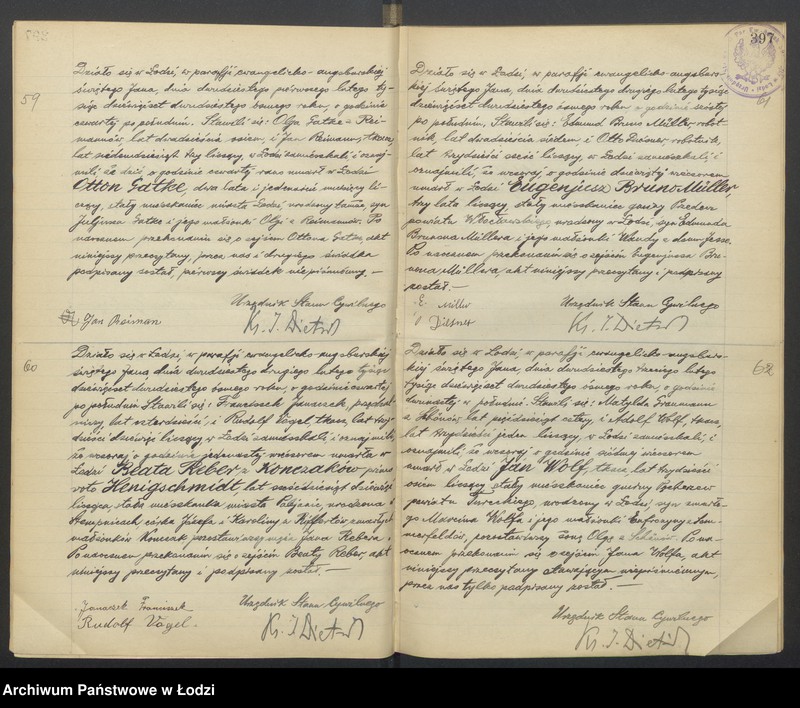 59
Działo się w Łodzi, w parafji ewangelicko-augsburskiej
świętego Jana, dnia dwudziestego pierwszego lutego ty-
siąc dziewięćset dwudziestego ósmego roku, o godzinie
czwartej po południu. Stawili się: Olga Gatke z Rei-
mannów, lat dwadzieścia osiem, i Jan Reimann, tkacz,
lat siedemdziesiąt trzy liczący, w Łodzi zamieszkali i oznaj-
mili, że dziś, o godzinie czwartej rano umarł w Łodzi
Otton Gatke, dwa lata i jedenaście miesięcy li-
czący, stały mieszkaniec miasta Łodzi, urodzony tamże, syn
Juljusza Gatke i jego małżonki Olgi z Reimannów. Po
naocznem przekonaniu się o zejściu Ottona Gatke, akt
niniejszy przeczytany, przez nas i drugiego świadka
podpisany został, pierwszy świadek niepiśmienny. —
Urzędnik Stanu Cywilnego
Jan Reiman
Ks. J. Dietrich
60
Działo się w Łodzi, w parafji ewangelicko-augsburskiej
świętego Jana, dnia dwudziestego drugiego lutego tysiąc
dziewięćset dwudziestego ósmego roku, o godzinie czwartej
po południu. Stawili się: Franciszek Janaczek,
lat czterdzieści, i Rudolf Vogel, tkacz, lat trzy-
dzieści dziewięć liczący, w Łodzi zamieszkali, i oznajmili,
że wczoraj o godzinie jedenastej wieczorem umarła w
Łodzi Beata Reber, z Konczaków, primo
voto Henigschmidt, lat sześćdziesiąt dziewięć
licząca, stała mieszkanka miasta Pabjanic, urodzona w
córka Józefa i Karoliny z
małżonków Konczak pozostawiwszy męża Jana Rebera.
Po naocznem przekonaniu się o zejściu Beaty Reber, akt
niniejszy przeczytany i podpisany został. —
Urzędnik Stanu Cywilnego
Janaczek Franciszek
Rudolf Vogel.
Ks. J. Dietrich
397
61
Działo się w Łodzi, w parafji ewangelicko-augsburs-
kiej świętego Jana, dnia dwudziestego drugiego lutego tysiąc
dziewięćset dwudziestego ósmego roku, o godzinie szóstej
po południu. Stawili się: Edmund Bruno Müller, robot-
nik, lat dwadzieścia siedem, i Otto, robotnik,
lat trzydzieści sześć liczący, w Łodzi zamieszkali, i
oznajmili, że wczoraj, o godzinie dziewiątej wieczorem
umarł w Łodzi Eugenjusz Bruno Müller,
trzy lata liczący, stały mieszkaniec gminy
powiatu Włocławskiego, urodzony w Łodzi, syn Edmunda
Brunona Müllera i jego małżonki Wandy z domu Jesse.
Po naocznem przekonaniu się o zejściu Eugenjusza Bru-
nona Müllera, akt niniejszy przeczytany i podpisany
został. —
E. Miller
Urzędnik Stanu Cywilnego
Ks. J. Dietrich
62
Działo się w Łodzi, w parafji ewangelicko-augsburs-
kiej świętego Jana, dnia dwudziestego trzeciego lutego
tysiąc dziewięćset dwudziestego ósmego roku, o godzinie
dwunastej w południe. Stawili się: Matylda
z, lat pięćdziesiąt cztery, i Adolf Wolf, tkacz,
lat trzydzieści jeden liczący, w Łodzi zamieszkali, i
oznajmili, że wczoraj o godzinie siódmej wieczorem
umarł w Łodzi Jan Wolf, tkacz, lat trzydzieści
osiem liczący, stały mieszkaniec gminy
powiatu Tureckiego, urodzony w Łodzi, syn zmarłe-
go Marcina Wolfa i jego małżonki Eufrozyny z Som-
merfeldów, pozostawiwszy żonę Olgę z. Po na-
ocznem przekonaniu się o zejściu Jana Wolfa, akt
niniejszy przeczytany stawającym niepiśmiennym,
przez nas tylko podpisany został. —
Urzędnik Stanu Cywilnego
Ks. J. Dietrich
Archiwum Państwowe w Łodzi